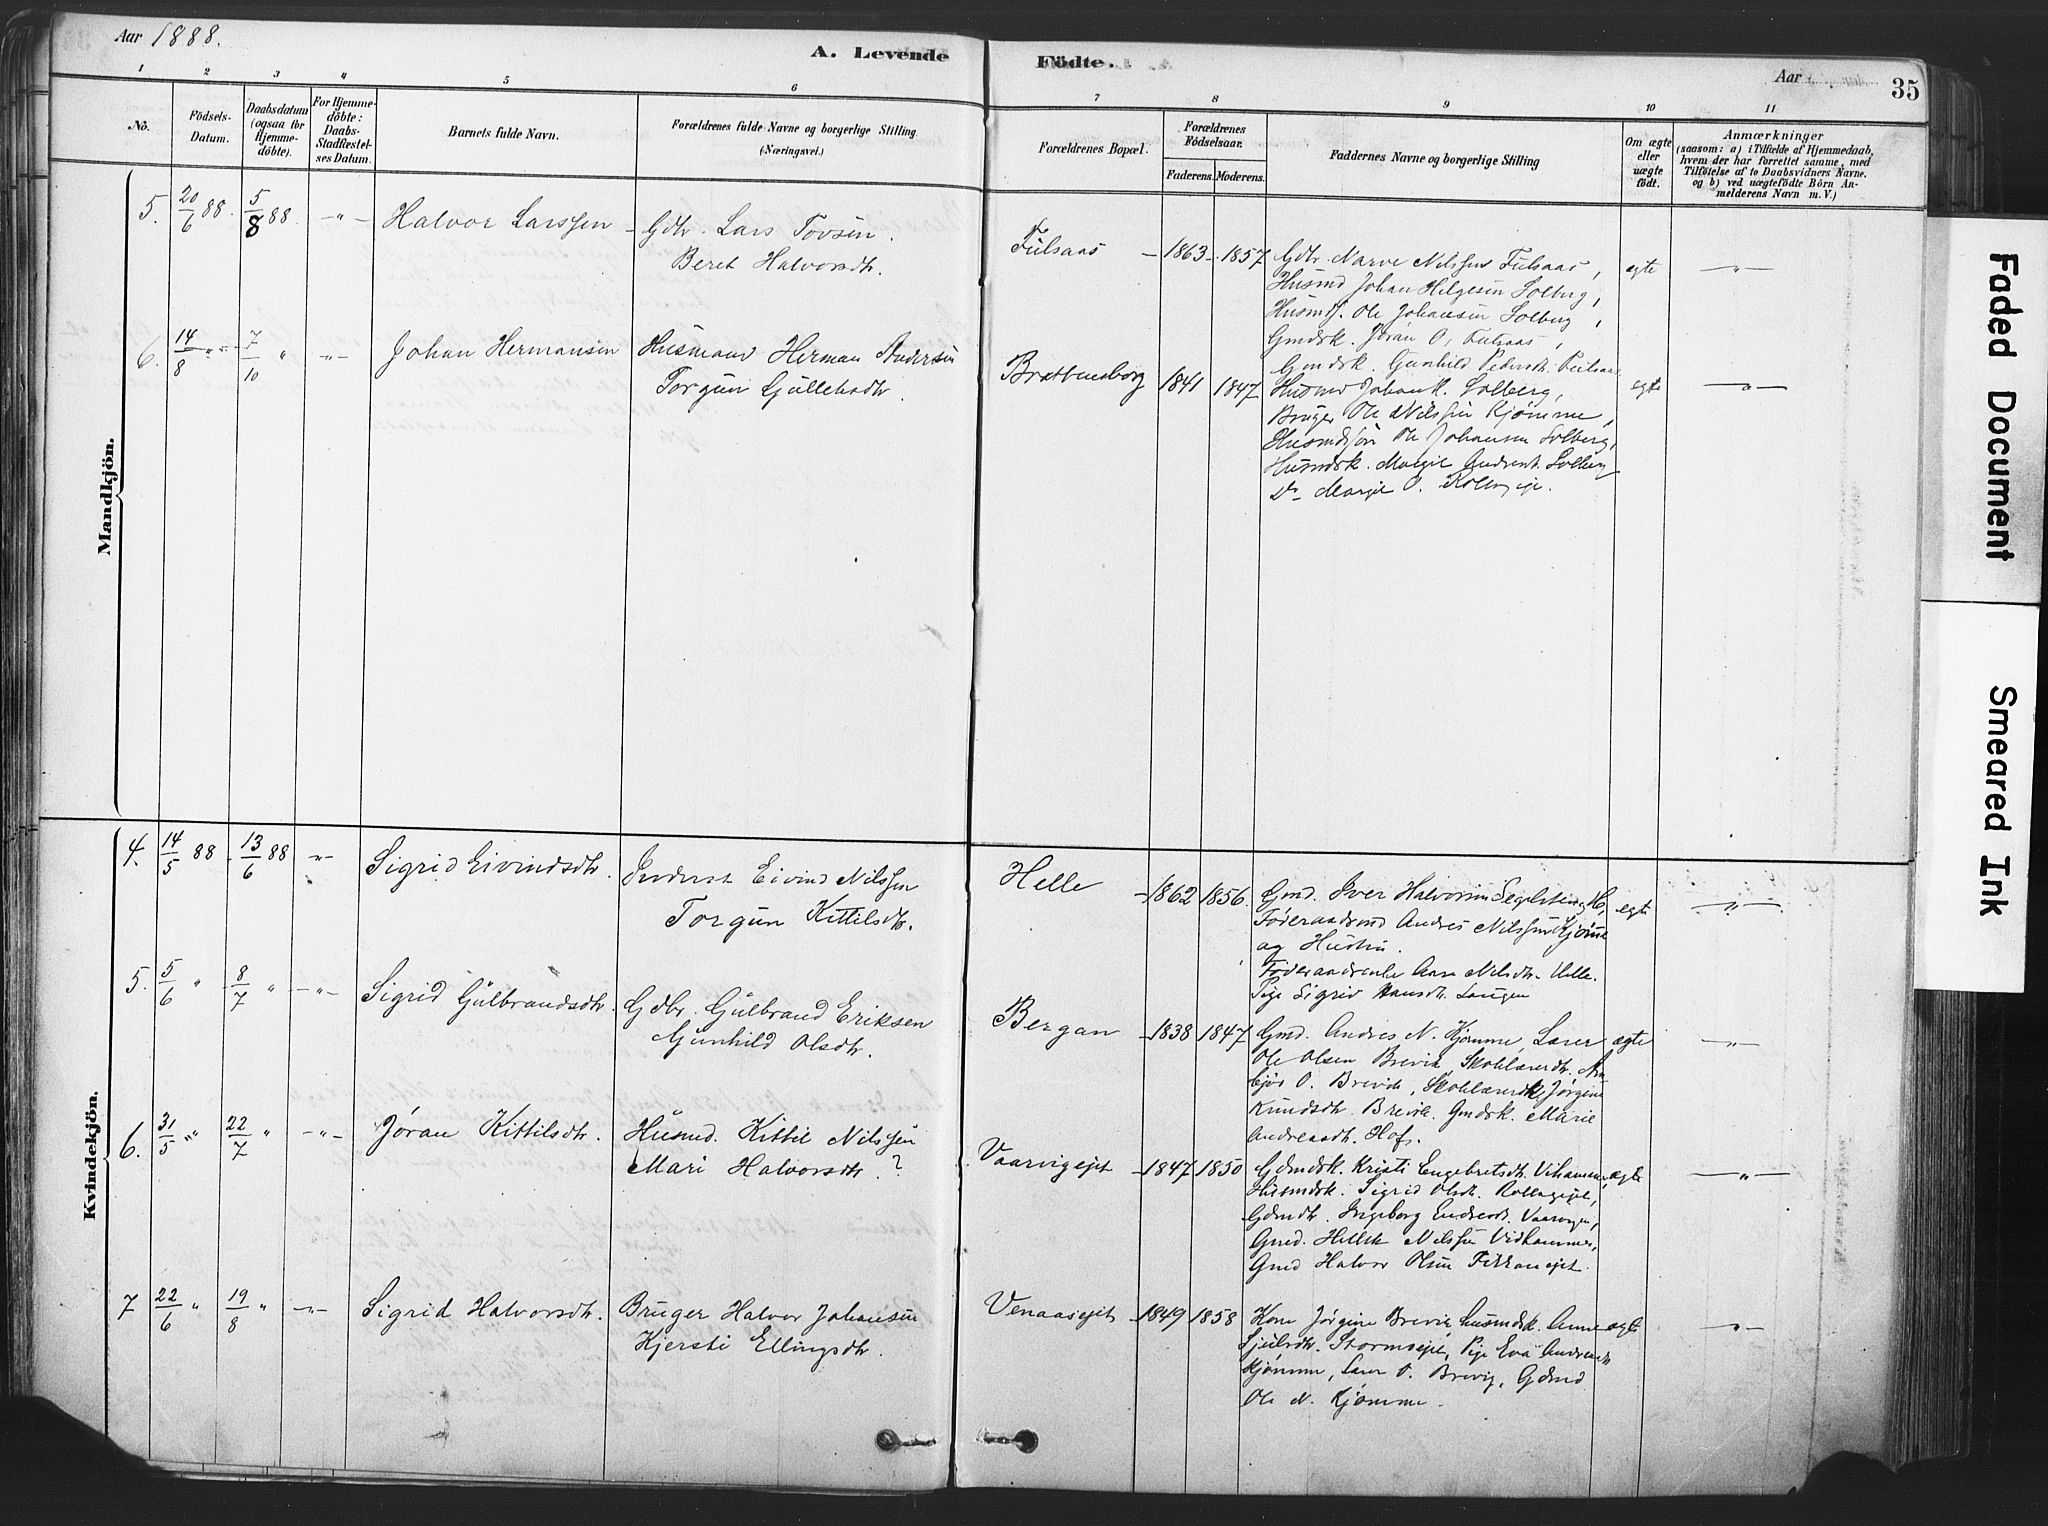 Aar 1888.
A. Levende Födte.
Aar
35
1 2 3 4 5 6 7 8 9 10 11
No.
Födsels-
Datum.
Daabsdatum
(ogsaa for
Hjemme-
döbte).
For Hjemme-
döbte:
Daabs-
Stadfæstel-
ses Datum.
Barnets fulde Navn.
Forældrenes fulde Navne og borgerlige Stilling.
(Næringsvei.)
Forældrenes Bopæl.
Forældrenes
Födselsaar.
Faderens. Moderens.
Faddernes Navne og borgerlige Stilling
Om ægte
eller
uægte
födt.
Anmærkninger
(saasom: a) i Tilfælde af Hjemmedaab,
hvem der har forrettet samme, med
Tilföielse af to Daabsvidners Navne.
og b) ved uægtefödte Börn An-
melderens Navn m.V.)
Mandkjön.
5. 20/6 88. 5/8 88 -"- Halvor Larssen
Gdbr. Lars Tovsen.
Beret Halvorsdtr.
Fulsaas - 1863 - 1857
Gdbr. Narve Nilssen Fulsaas,
Husmd Johan Helgesen Solberg,
Husmds. Ole Johansen Solberg,
Gmdsk. Jøran O. Fulsaas,
Gmdsk. Gunhild Pedersdtr. Fulsaas
egte -"-
6. 14/8 " 7/10 " -"- Johan Hermansen
Husmand Herman Andersen
Torgun Gulleksdtr.
Brattensborg 1841 1847
Husmd Johan H. Solberg,
Bruger Ole Nilssen Kjømme,
Husmdsøn Ole Johansen Solberg,
Husmdsk. Margit Andersdt. Solberg
Do Margit O.
egte -"-
Kvindekjön.
4. 14/5 88 13/6 88 -"- Sigrid Eivindsdtr.
Inderst Eivind Nilssen
Torgun Kittilsdtr.
Helle - 1862 1856.
Gmd. Iver Halvorsen
Føderaadsmd Andres Nilssen Kjømme
og Hustru.
Føderaadsenke Aase Nilsdtr. Helle.
Pige Sigrid Hansdtr. Langen
egte -"-
5. 5/6 " 8/7 " -"- Sigrid Gulbrandsdtr.
Gdbr. Gulbrand Eriksen
Gunhild Olsdtr.
Bergan - 1838 1847
Gmd. Andres N. Kjømme, Lærer
Ole Olsen Brevik, Skolelærerdtr. An-
bjør O. Brevik, Skolelærerdk. Jørgine
Knudsdtr. Brevik. Gmdsk. Marie
Andreasdtr. Hof.
ægte -"-
6. 31/5 " 22/7 " -"- Jøran Kittilsdtr.
Husmd. Kittil Nilssen
Mari Halvorsdtr. ?
Vaarvigejet - 1847 1850
Gdmdsk. Kristi Engebretsdtr. Vihammer,
Husmdsk. Sigrid Olsdtr.
Gdmdtr. Ingeborg Endresdt. Vaarvigen,
Gmd. Hellek Nilssen Vidhammer,
Gmd Halvor Olsen
ægte -"-
7 22/6 " 19/8 " -"- Sigrid Halvorsdtr.
Bruger Halvor Johansen
Kjersti Ellingsdtr.
Venaasejet - 1849 1858
Kone Jørgine Brevik, Husmdsk. Anne
Stormoejet, Pige Eva Andreasdtr
Kjømme, Lærer O. Brevig, Gdmd
Ole N. Kjømme.
ægte -"-
Faded Document
Smeared Ink